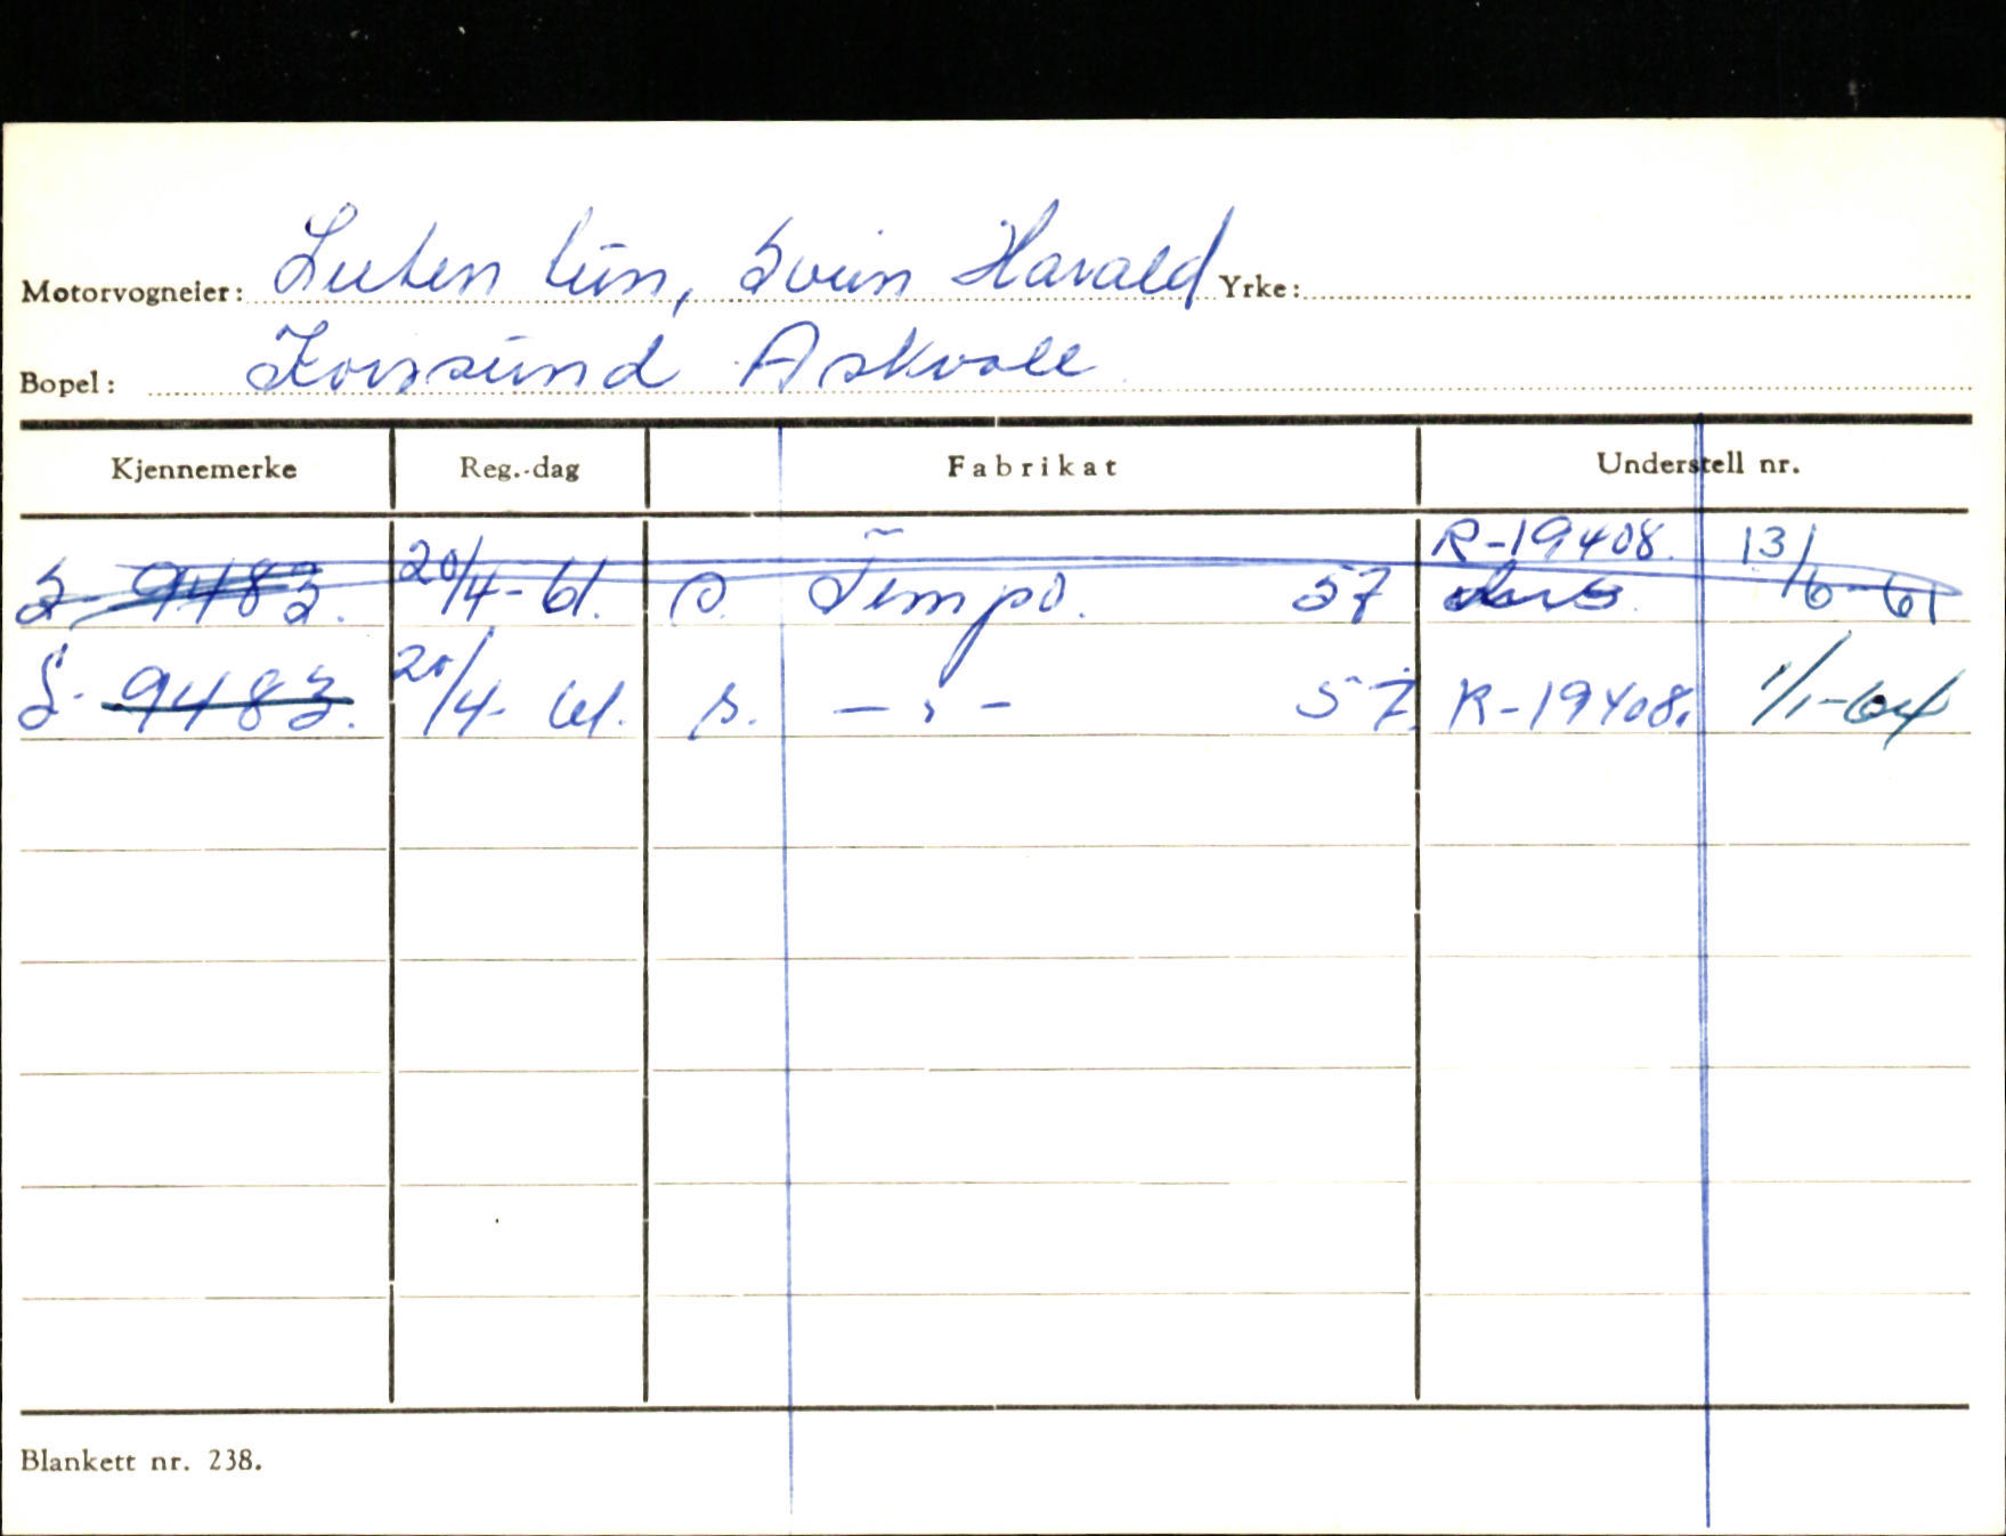 Motorvogneier: Lutentun, Svein Harald Yrke:
Bopel: Korssund Askvoll
Kjennemerke Reg.-dag Fabrikat Understell nr.
R-19408. 13/6-61
S-9483. 20/4-61. Tempo. 57
S-9483. 20/4-61. s. -,- 57. R-19408. 1/1-64
Blankett nr. 238.